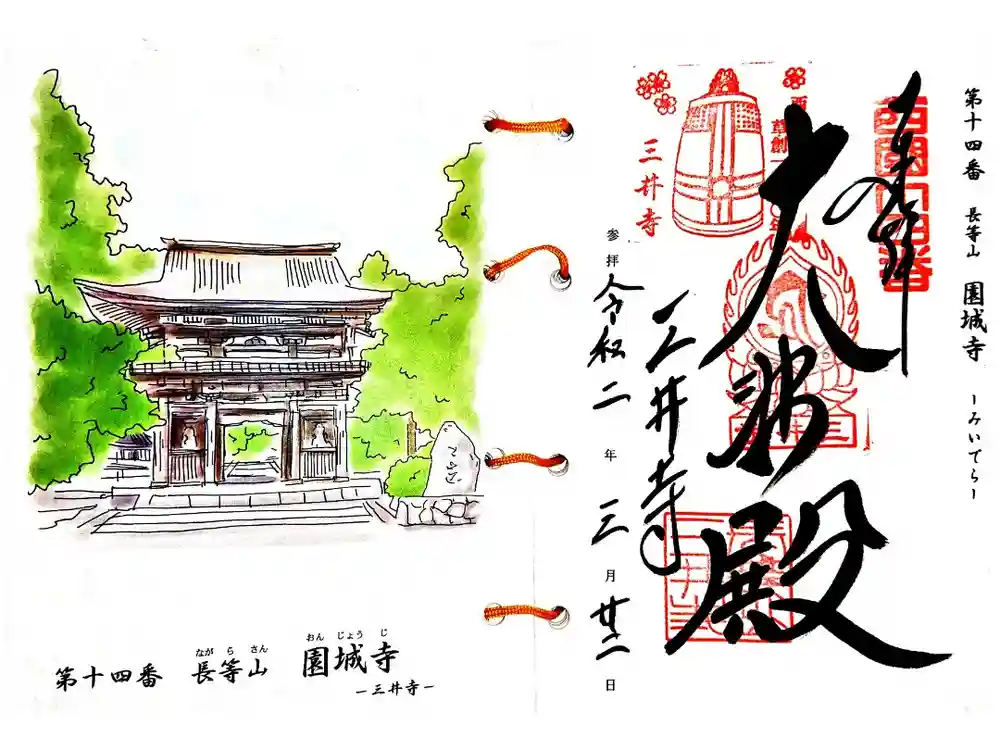 第十四番 長等山 園城寺 ―みいでら―
奉拝
西国十四番
大悲殿
三井寺
三井寺
参拝 令和二年三月廿二日
ながらさん おんじょうじ
第十四番 長等山 園城寺
―三井寺―